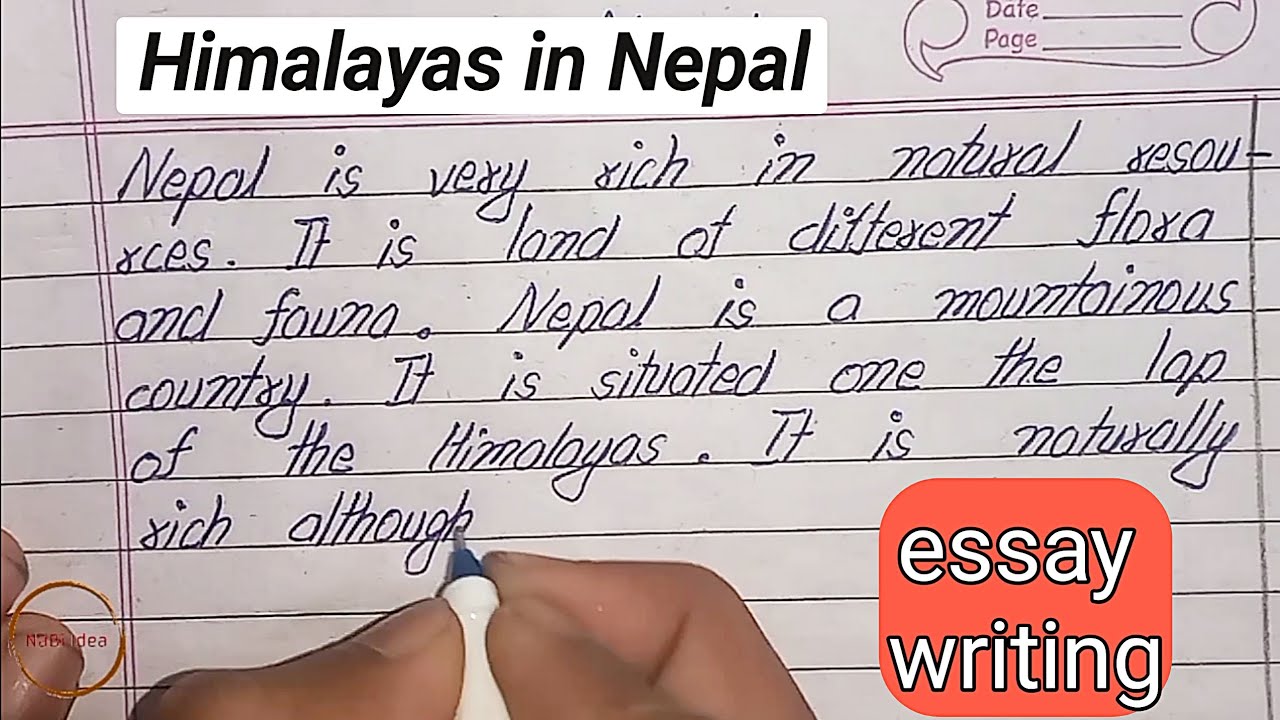 Date
Page
Himalayas in Nepal
Nepal is very rich in natural resou-
rces. It is land of different flora
and fauna. Nepal is a mountainous
country. It is situated one the lap
of the Himalayas. It is naturally
rich although
essay
writing
NaBi Idea